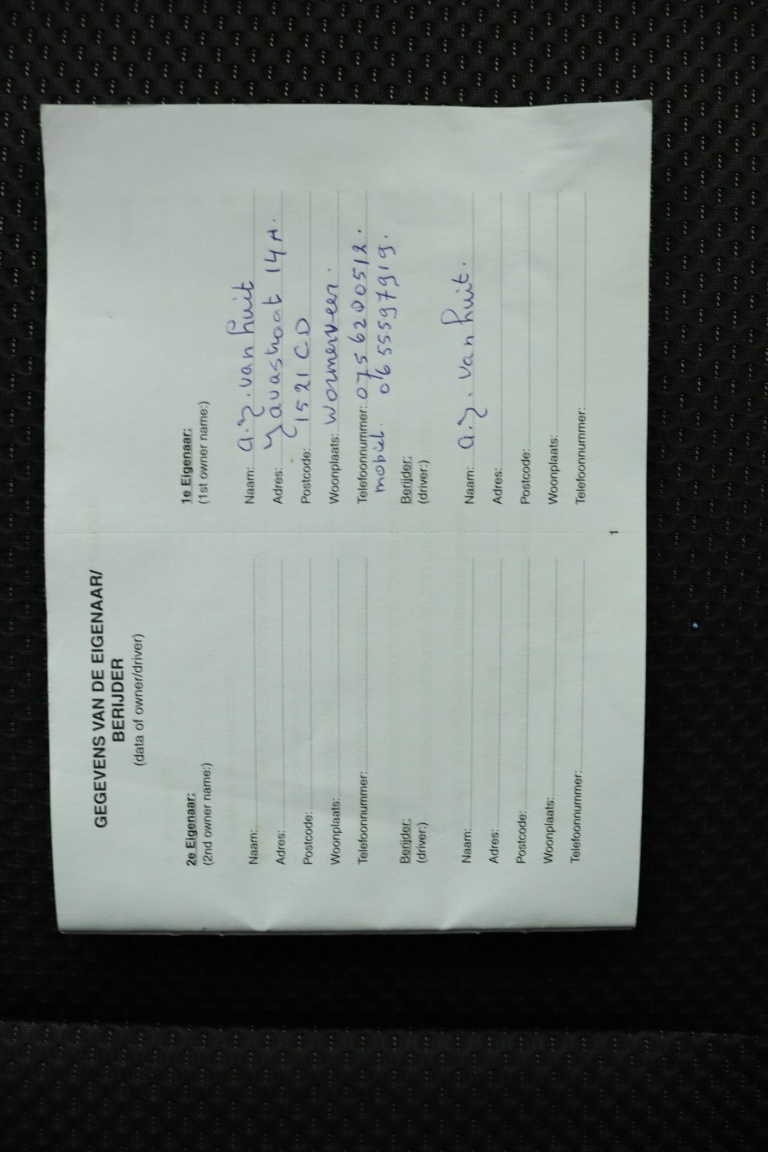 GEGEVENS VAN DE EIGENAAR/
BERIJDER
(data of owner/driver)
2e Eigenaar:
(2nd owner name:)
Naam:
Adres:
Postcode:
Woonplaats:
Telefoonnummer:
Berijder:
(driver:)
Naam:
Adres:
Postcode:
Woonplaats:
Telefoonnummer:
1e Eigenaar:
(1st owner name:)
Naam: a.z. van huit
Adres: Javastraat 14A.
Postcode: 1521 CD
Woonplaats: Wormerveer.
Telefoonnummer: 075 6200512.
mobiel. 06 55597919.
Berijder:
(driver:)
Naam: a.z. van huit.
Adres:
Postcode:
Woonplaats:
Telefoonnummer:
1